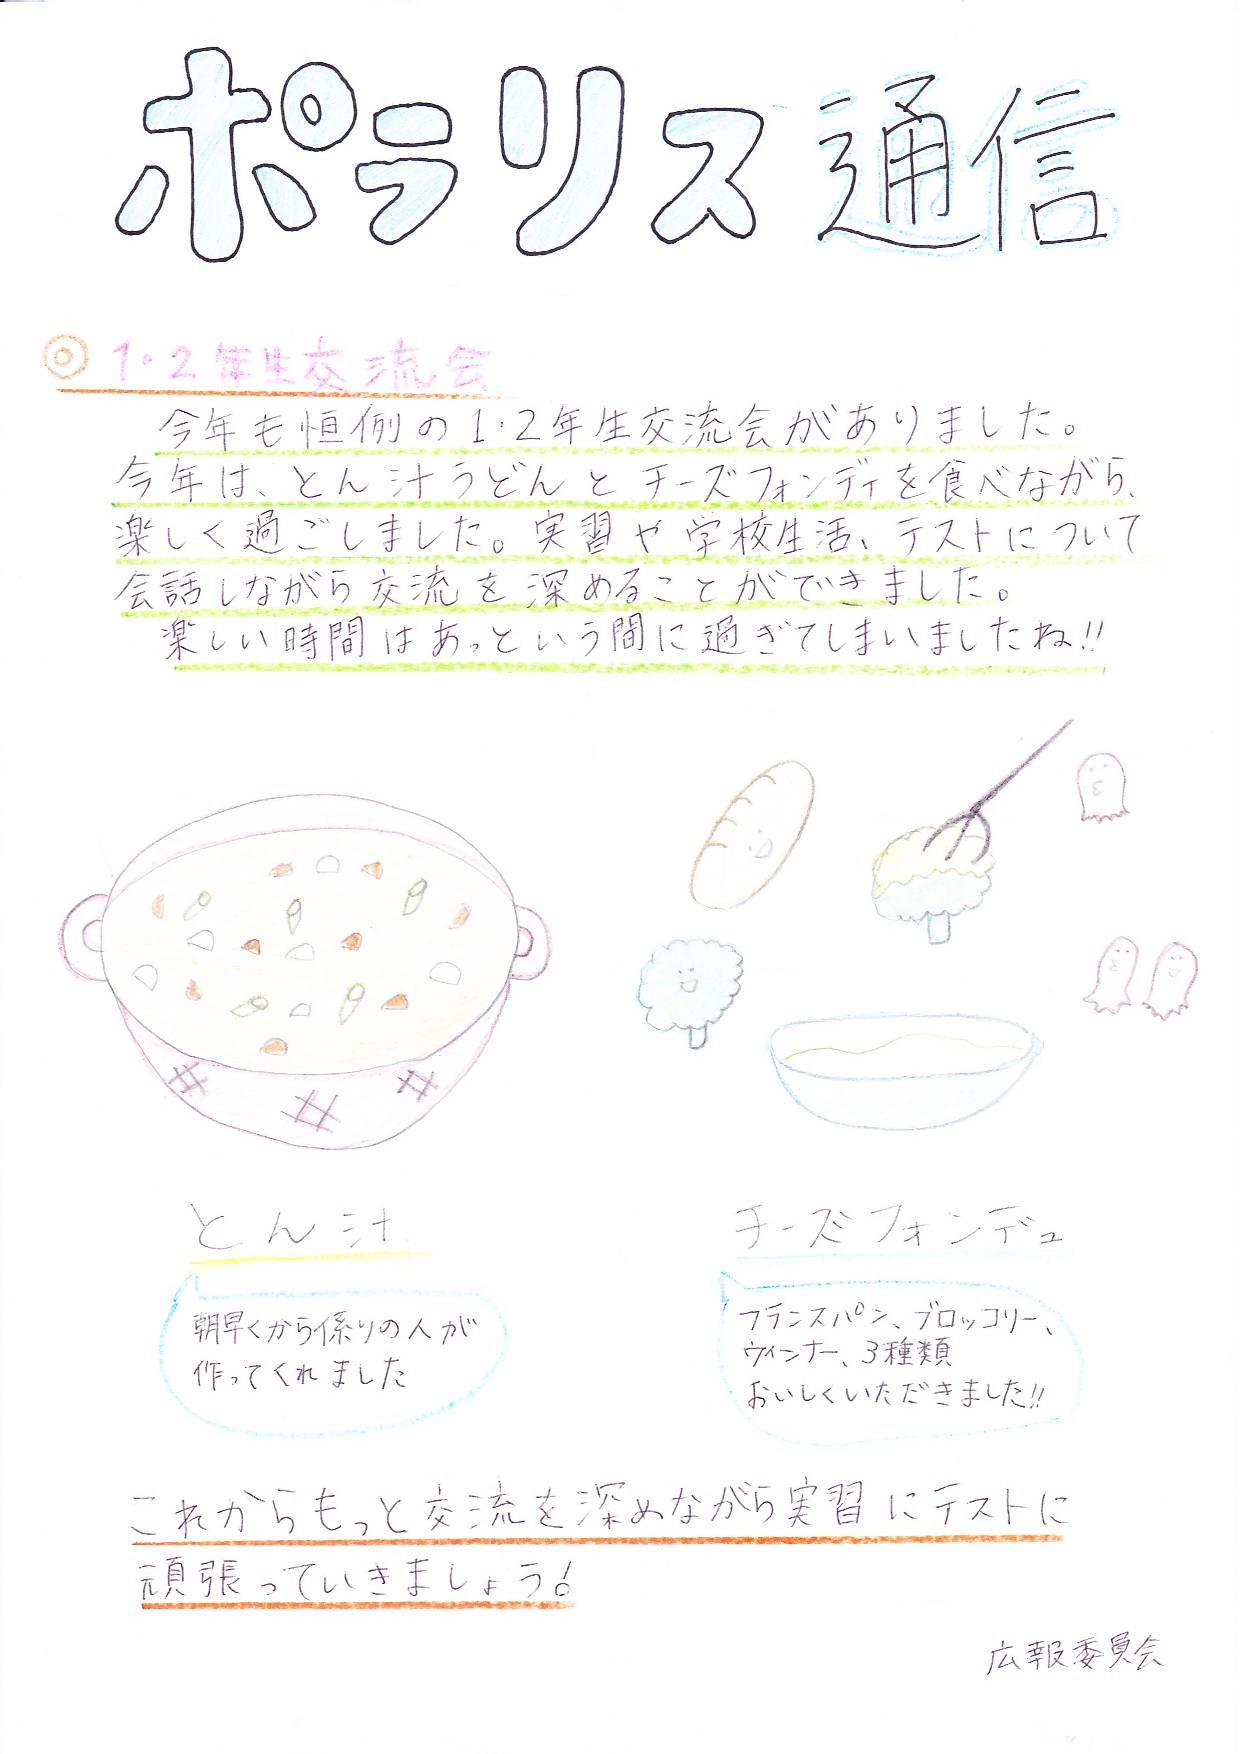 ポラリス通信
◎1・2年生交流会
今年も恒例の1・2年生交流会がありました。
今年は、とん汁うどんとチーズフォンディを食べながら、
楽しく過ごしました。実習や学校生活、テストについて
会話しながら交流を深めることができました。
楽しい時間はあっという間に過ぎてしまいましたね!!
とん汁
朝早くから係りの人が
作ってくれました
チーズフォンデュ
フランスパン、ブロッコリー、
ウィンナー、3種類
おいしくいただきました!!
これからもっと交流を深めながら実習にテストに
頑張っていきましょう!
広報委員会